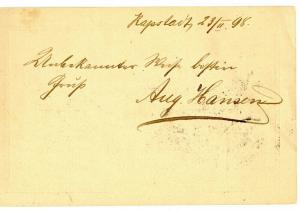 Kapstadt, 23/II. 98.
Unbekannter Weise besten
Gruß
Aug. Hansen